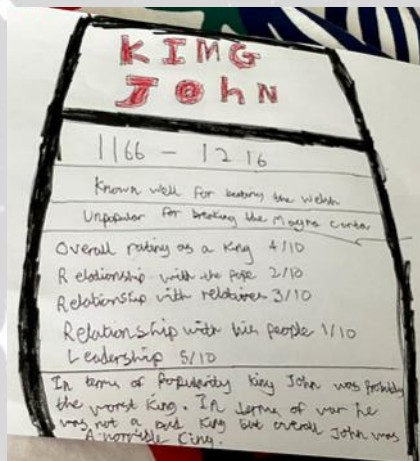 KIMG
JOhN
1166 - 1216
Known well for beating the Welsh
Unpopular for breaking the Magna Carta
Overall rating as a King 4/10
Relationship with the pope 2/10
Relationship with relatives 3/10
Relationship with his people 1/10
Leadership 5/10
In terms of Popularity King John was Probably
the worst King. In terms of war he
was not a bad King but overall John was
A horrible King.